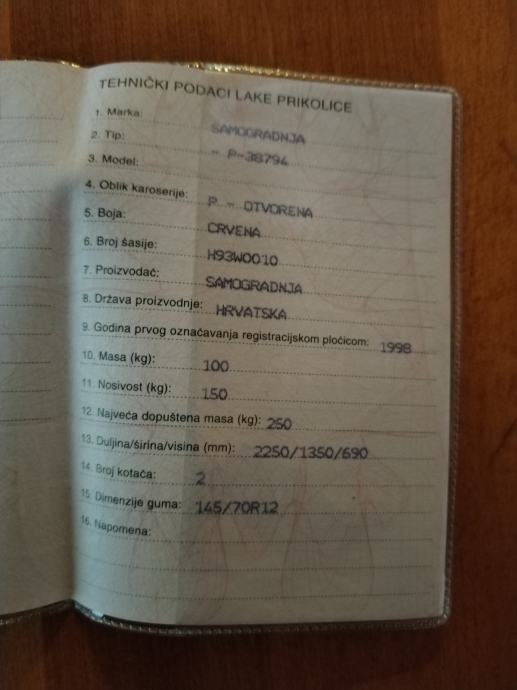 TEHNIČKI PODACI LAKE PRIKOLICE
1. Marka: SAMOGRADNJA
2. Tip: - P-38794
3. Model:
4. Oblik karoserije: P - OTVORENA
5. Boja: CRVENA
6. Broj šasije: H93W0010
7. Proizvođač: SAMOGRADNJA
8. Država proizvodnje: HRVATSKA
9. Godina prvog označavanja registracijskom pločicom: 1998
10. Masa (kg): 100
11. Nosivost (kg): 150
12. Najveća dopuštena masa (kg): 250
13. Duljina/širina/visina (mm): 2250/1350/690
14. Broj kotača: 2
15. Dimenzije guma: 145/70R12
16. Napomena: